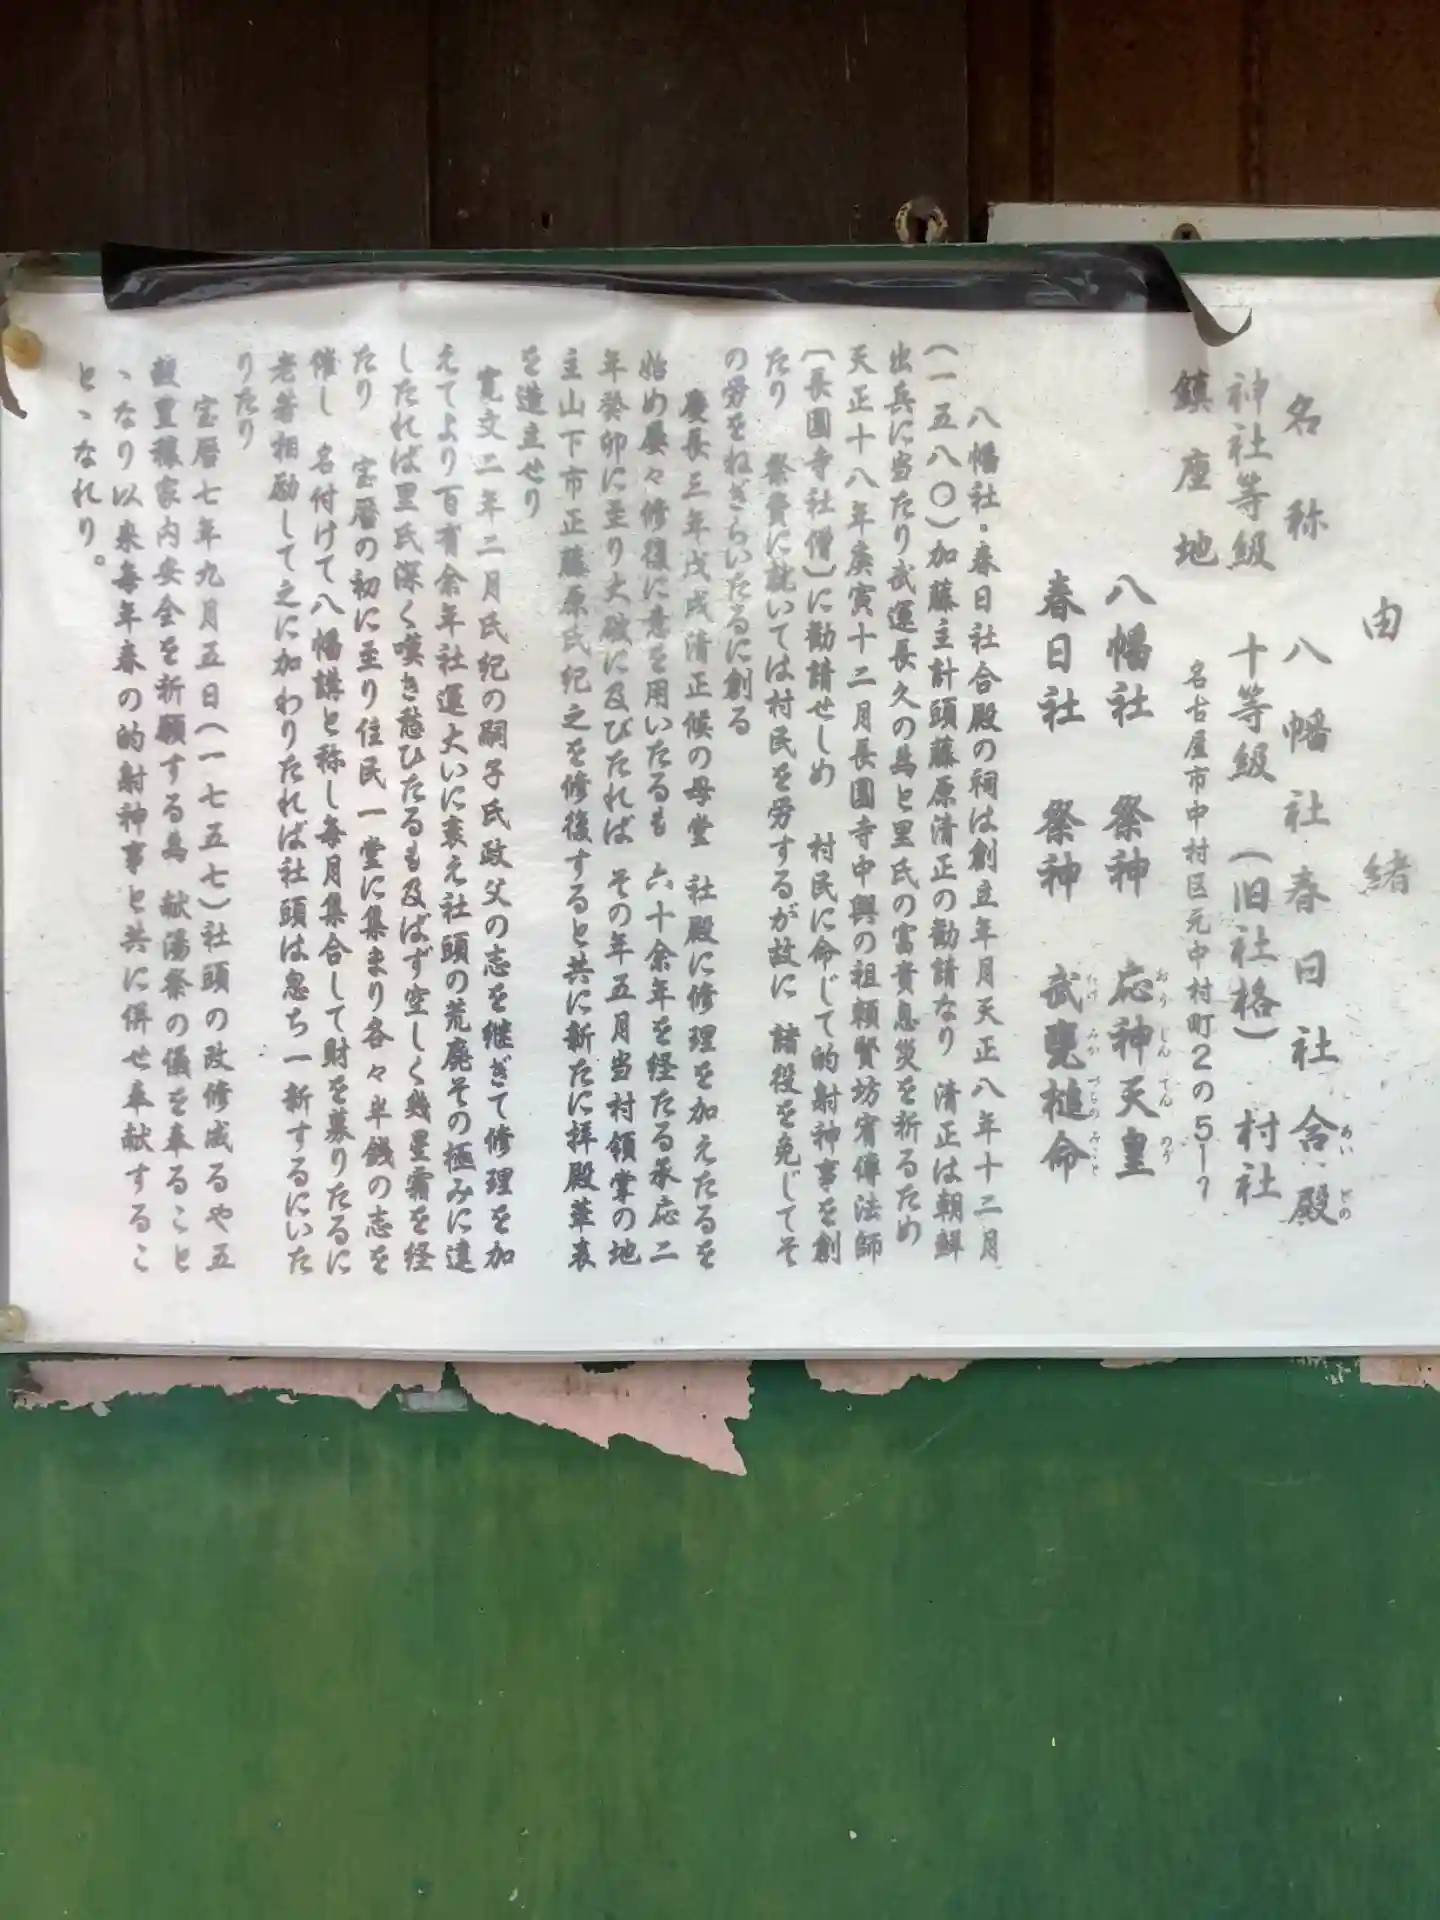 由緒
名称 八幡社春日社合殿
神社等級 十等級（旧社格） 村社
鎮座地 名古屋市中村区元中村町2の51
八幡社 祭神 応神天皇
春日社 祭神 武甕槌命
八幡社・春日社合殿の祠は創立年月天正八年十二月
（一五八〇）加藤主計頭藤原清正の勧請なり 清正は朝鮮
出兵に当たり武運長久の為と里氏の富貴息災を祈るため
天正十八年庚寅十二月長圓寺中興の祖頼賢坊宥傳法師
（長圓寺社僧）に勧請せしめ 村民に命じて的射神事を創
たり 祭費に就いては村民を労するが故に 諸役を免じてそ
の労をねぎらいたるに創る
慶長三年戊戌清正候の母堂 社殿に修理を加えたるを
始め屡々修復に意を用いたるも 六十余年を経たる承応二
年癸卯に至り大破に及びたれば その年五月当村領掌の地
主山下市正藤原氏紀之を修復すると共に新たに拝殿華表
を造立せり
寛文二年二月氏紀の嗣子氏政父の志を継ぎて修理を加
えてより百有余年社運大いに衰え社頭の荒廃その極みに達
したれば里氏深く嘆き愁ひたるも及ばず空しく幾星霜を経
たり 宝暦の初に至り住民一堂に集まり各々半銭の志を
催し 名付けて八幡講と称し毎月集合して財を募りたるに
老若相励して之に加わりたれば社頭は忽ち一新するにいた
りたり
宝暦七年九月五日（一七五七）社頭の改修成るや五
穀豊穣家内安全を祈願する為 献湯祭の儀を奉ること
ヽなり以来毎年春の的射神事と共に併せ奉献するこ
とヽなれり。